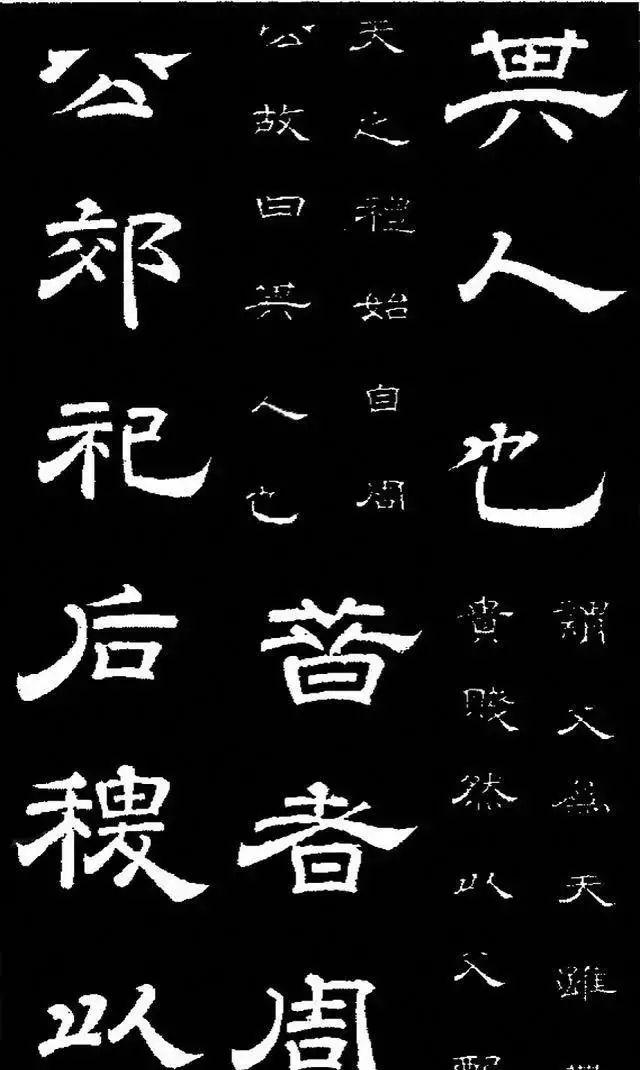 其人也
謂父為天雖無
貴賤然以父配
天之禮始自周
公故曰其人也
昔者周
公郊祀后稷以